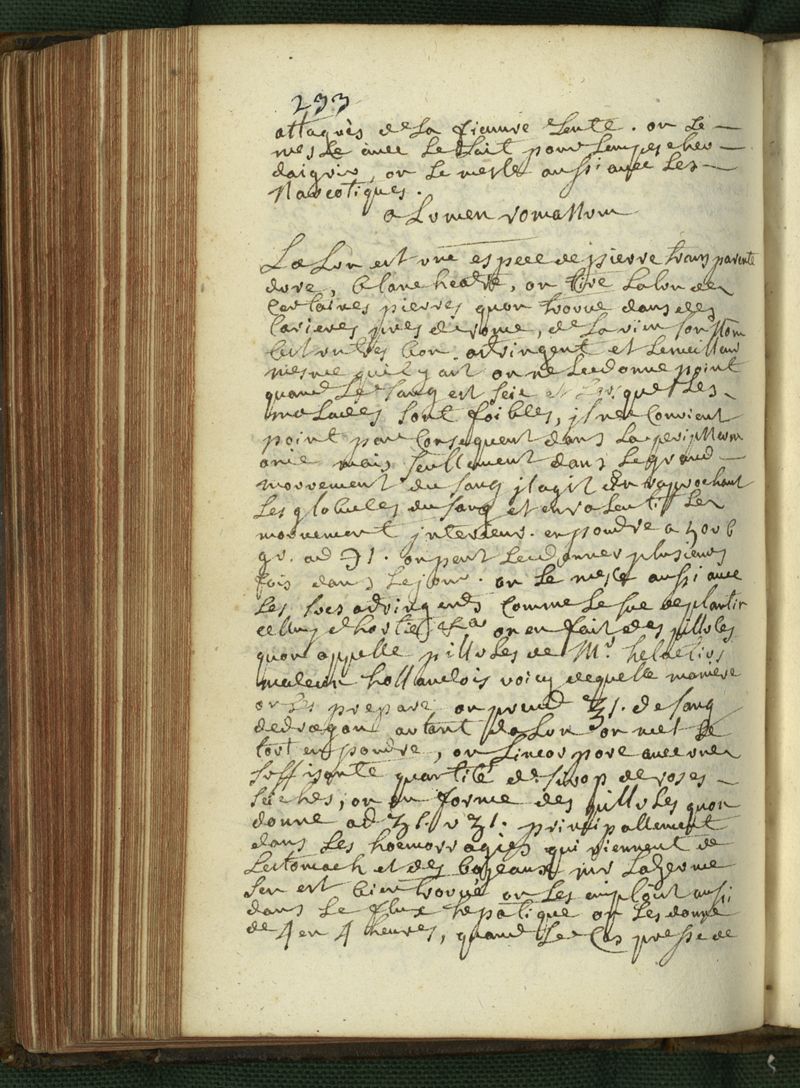 233
attaqués de la fievre lente. on le
mesle avec le lait pour l'empescher
daigrir, on le mesle aussi avec les
Narcotiques.
alumen romanum
Lalun est une espece de pierre transparente
dure, blancheatre, on tire lalun de
certaines pierres quon trouve dans des
carieres pres de rome, de la vient son nom
il est un tres bon adstringent et le meilleur
mesme quil y ait on ne le donne point
quand le sang est sec et lorsque les
malades sont foibles, il ne convient
point par consequent dans la peripneum
onie mais seullement dans le grand
mouvement du sang il agit en rapprochant
les globules du sang et en ralentit le
mouvement interieur. en poudre a 5 ou 6
gr. ad ℈1. on peut le donner plusieurs
fois dans le jour. on le mesle aussi avec
les sucs adstringents comme le suc de plantin
celluy dhortie &ca on en fait des pillules
quon appelle pillules de Mr. helvetius
medecin hollandois voicy de quelle maniere
on les prepare on prend ʒ1. de sang
de dragon autant dalun on met le
tout en poudre, on lincorpore avec une
suffisante quantité de sirop de roses
seiches, on en forme des pillules quon
donne ad ʒ1. principallement
dans les hoemorragies qui viennent de
lestomach et des boyeaux mr Lazerme
sen est bien trouvé on les emploit aussi
dans le flux hepatique on les donne
de 4 en 4 heures, quand le cas presse de